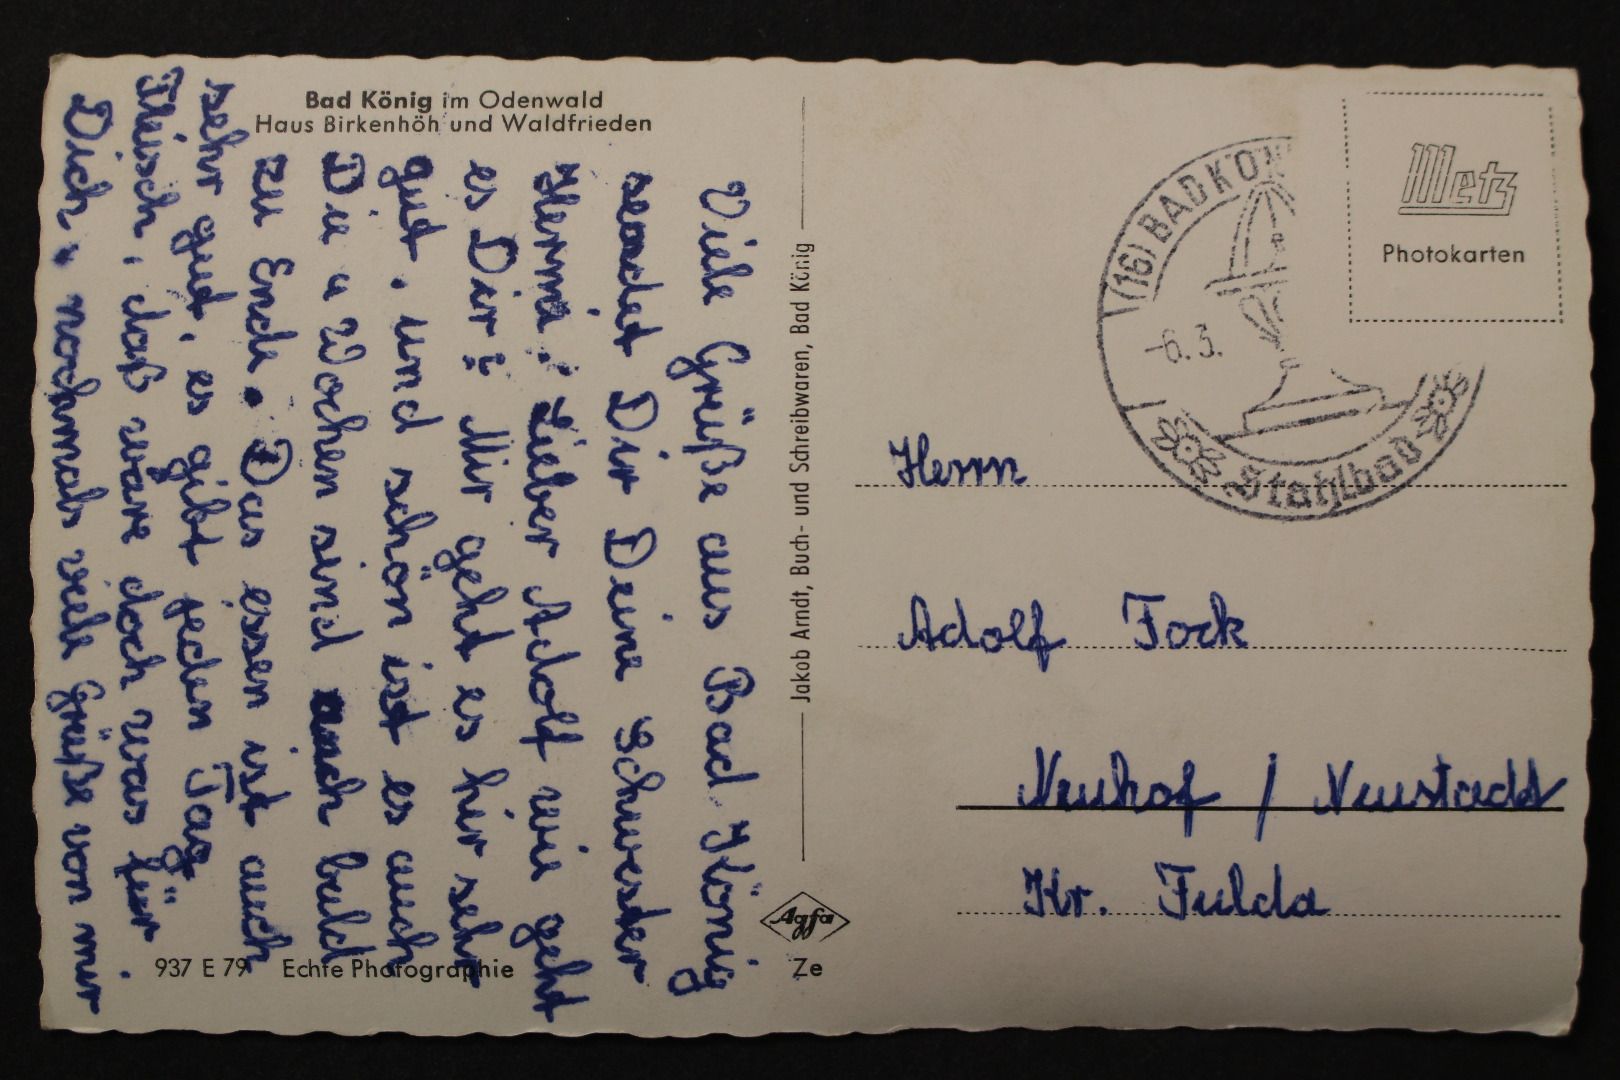 Bad König im Odenwald
Haus Birkenhöh und Waldfrieden
Viele Grüße aus Bad König
sendet Dir Deine Schwester
Herma. Lieber Adolf wie geht
es Dir? Mir geht es hir sehr
gut. und schön ist es auch
Die 4 Wochen sind auch bald
zu Ende. Das essen ist auch
sehr gut, es gibt jeden Tag
Fleisch, daß wäre doch was für
Dich. nochmals viele Grüße von mir
937 E 79 Echte Photographie
Jakob Arndt, Buch- und Schreibwaren, Bad König
Agfa
Ze
(16) BAD KÖN
-6.3.
Stahlbad
Metz
Photokarten
Herrn
Adolf Fock
Neuhof / Neustadt
Kr. Fulda